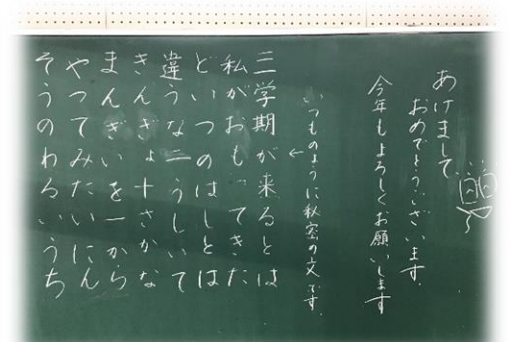 あけまして
おめでとうございます。
今年もよろしくお願いします
いつものように秘密の文です。
←
三学期が来るとは
私がおもってきた
どいつのはしとは
違うな二うしいて
きんぎょ十さかな
まんぎいを一から
やってみたいにん
そうのわるいうち